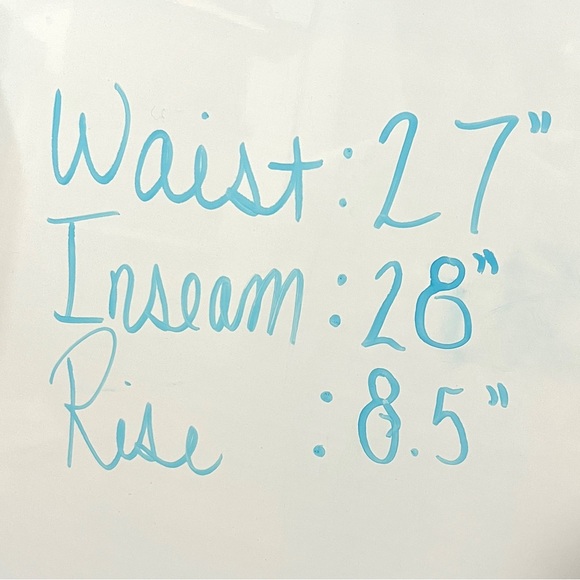 Waist: 27"
Inseam: 28"
Rise : 8.5"